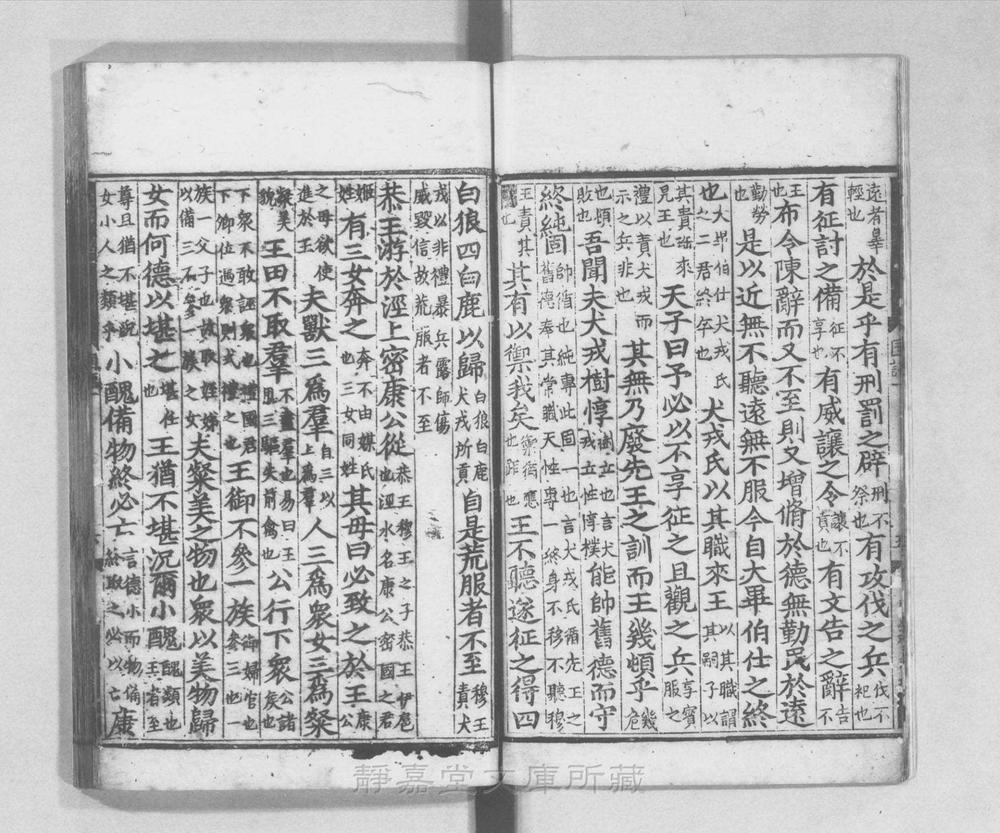 遠者辠輕也於是乎有刑罰之辟刑不祭也有攻伐之兵伐不祀也
有征討之備征不享也有威讓之令讓不貢也有文告之辭告不
王也布令陳辭而又不至則又增脩於德無勤民於遠
勤勞也是以近無不聽遠無不服今自大畢伯仕之終
也大畢伯仕犬戎氏之二君終卒也犬戎氏以其職來王以其職謂其嗣子以
其貴珤來見王也天子曰予必以不享征之且觀之兵享賓服之
禮以責犬戎而示之兵非也其無乃廢先王之訓而王幾頓乎幾危
也頓敗也吾聞夫犬戎樹惇樹立也言犬戎立性惇樸能帥舊德而守
終純固帥循也純專此固一也言犬戎氏循先王之舊德奉其常職天性專一終身不移不聽穆
王責其也其有以禦我矣禦猶應也距也王不聽遂征之得四
白狼四白鹿以歸白狼白鹿犬戎所貢自是荒服者不至穆王責犬
戎以非禮暴兵露師傷威毀信故荒服者不至
恭王游於涇上密康公從恭王穆王之子恭王伊扈也涇水名康公密國之君
姬姓有三女奔之奔不由媒氏也三女同姓其母曰必致之於王康公
之母欲使進於王夫獸三爲羣自三以上爲羣人三爲衆女三爲粲
粲美貌王田不取羣不盡羣也易曰王用三驅失前禽也公行下衆公諸侯也
下衆不敢誣衆也禮國君下卿位過衆則式禮之也王御不參一族御婦官也參三也一
族一父子也故取姪娣以備三不參一族之女夫粲美之物也衆以美物歸
女而何德以堪之堪任也王猶不堪況爾小醜醜類也王者至
尊且猶不堪況女小人之類乎小醜備物終必亡言德小而物備終取之必以亡康
靜嘉堂文庫所藏